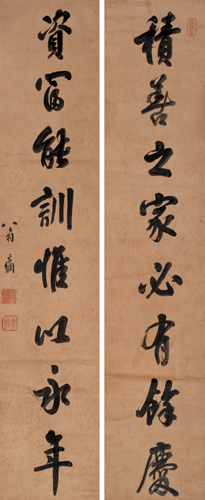 積善之家必有餘慶
資富能訓惟以永年
翁方綱